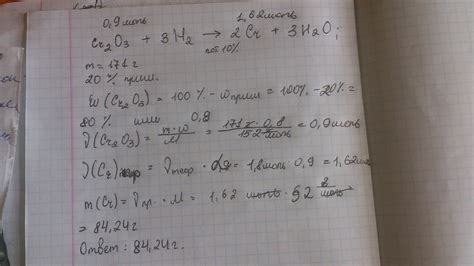 0,9моль 1,62моль
Cr₂O₃ + 3H₂ → 2Cr + 3H₂O;
пот 10%
m = 171г
20% прим.
ω(Cr₂O₃) = 100% - ωприм = 100% - 20% =
80% или 0,8
ν(Cr₂O₃) = m·ω/M = 171г·0,8/152 г/моль = 0,9моль
ν(Cr)пр = νтеор · = 1,8моль·0,9 = 1,62моль
m(Cr) = νпр. · M = 1,62 моль · 52 г/моль
= 84,24г.
Ответ: 84,24г.